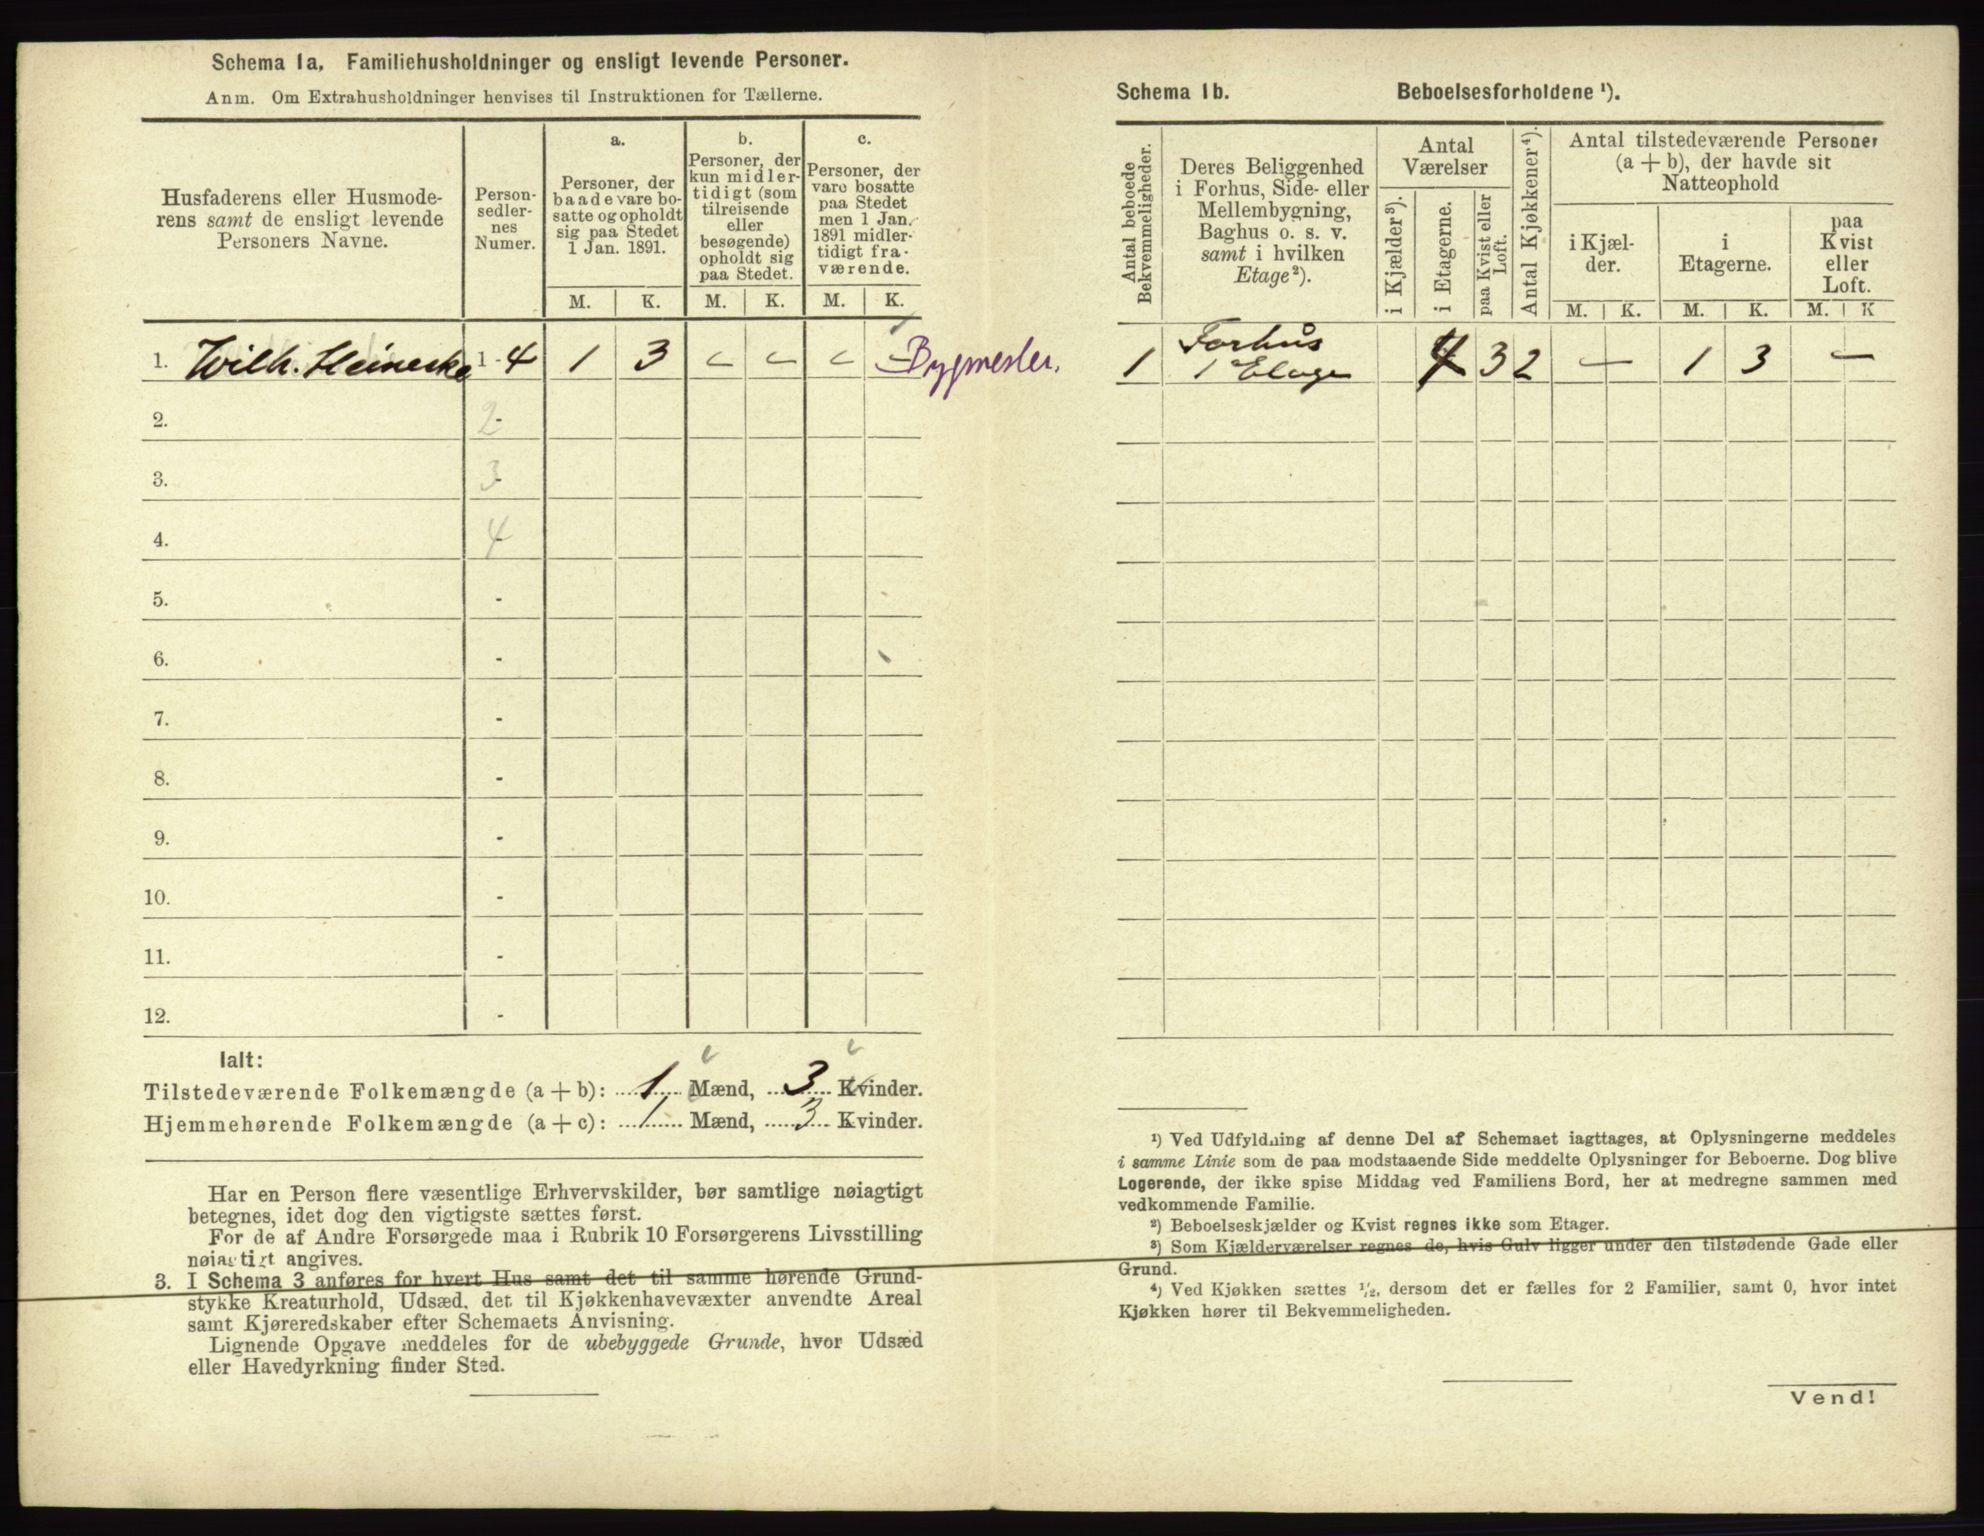 Schema 1a. Familiehusholdninger og ensligt levende Personer.
Anm. Om Extrahusholdninger henvises til Instruktionen for Tællerne.
Husfaderens eller Husmode-
rens samt de ensligt levende
Personers Navne.
Person-
sedler-
nes
Numer.
a.
Personer, der
baade vare bo-
satte og opholdt
sig paa Stedet
1 Jan. 1891.
b.
Personer, der
kun midler-
tidigt (som
tilreisende
eller
besøgende)
opholdt sig
paa Stedet.
c.
Personer, der
vare bosatte
paa Stedet
men 1 Jan.
1891 midler-
tidigt fra-
værende.
M. K. M. K. M. K.
1. Wilh. Heinecke 1 - 4 1 3 - - - - Bygmester.
2. 2 -
3. 3 -
4. 4 -
5. -
6. -
7. -
8. -
9. -
10. -
11. -
12. -
Ialt:
Tilstedeværende Folkemængde (a + b): 1 Mænd, 3 Kvinder.
Hjemmehørende Folkemængde (a + c): 1 Mænd, 3 Kvinder.
Har en Person flere væsentlige Erhvervskilder, bør samtlige nøiagtigt
betegnes, idet dog den vigtigste sættes først.
For de af Andre Forsørgede maa i Rubrik 10 Forsørgerens Livsstilling
nøiagtigt angives.
3. I Schema 3 anføres for hvert Hus samt det til samme hørende Grund-
stykke Kreaturhold, Udsæd, det til Kjøkkenhavevæxter anvendte Areal
samt Kjøreredskaber efter Schemaets Anvisning.
Lignende Opgave meddeles for de ubebyggede Grunde, hvor Udsæd
eller Havedyrkning finder Sted.
Schema 1b. Beboelsesforholdene ¹).
Antal beboede
Bekvemmeligheder.
Deres Beliggenhed
i Forhus, Side- eller
Mellembygning,
Baghus o. s. v.
samt i hvilken
Etage²).
Antal
Værelser
i Kjælder³).
i Etagerne.
paa Kvist eller
Loft.
Antal Kjøkkener⁴).
Antal tilstedeværende Personer
(a + b), der havde sit
Natteophold
i Kjæl-
der.
i
Etagerne.
paa
Kvist
eller
Loft.
M. K. M. K. M. K
1 Forhus
1 Etage 4 3 2 - 1 3 -
¹) Ved Udfyldning af denne Del af Schemaet iagttages, at Oplysningerne meddeles
i samme Linie som de paa modstaaende Side meddelte Oplysninger for Beboerne. Dog blive
Logerende, der ikke spise Middag ved Familiens Bord, her at medregne sammen med
vedkommende Familie.
²) Beboelseskjælder og Kvist regnes ikke som Etager.
³) Som Kjælderværelser regnes de, hvis Gulv ligger under den tilstødende Gade eller
Grund.
⁴) Ved Kjøkken sættes ½, dersom det er fælles for 2 Familier, samt 0, hvor intet
Kjøkken hører til Bekvemmeligheden.
Vend!